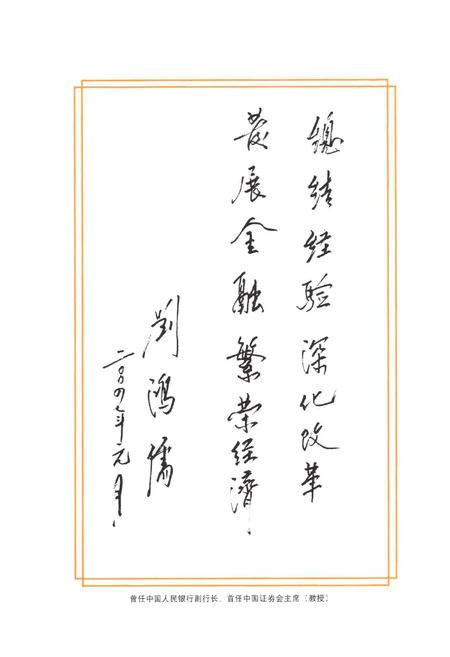 總結経验深化改革
发展金融繁荣经濟
劉鴻儒
二〇〇四年元月
曾任中国人民银行副行长、首任中国证券会主席（教授）